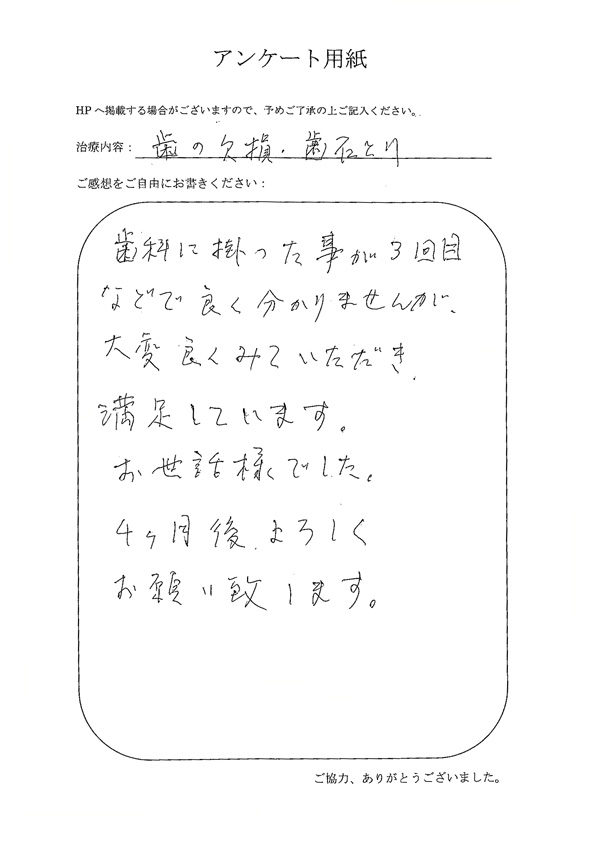 アンケート用紙
HPへ掲載する場合がございますので、予めご了承の上ご記入ください。
治療内容：歯の欠損・歯石とり
ご感想をご自由にお書きください：
歯科に掛った事が3回目
などで良く分かりませんが、
大変良くみていただき、
満足しています。
お世話様でした。
4ヶ月後、よろしく
お願い致します。
ご協力、ありがとうございました。